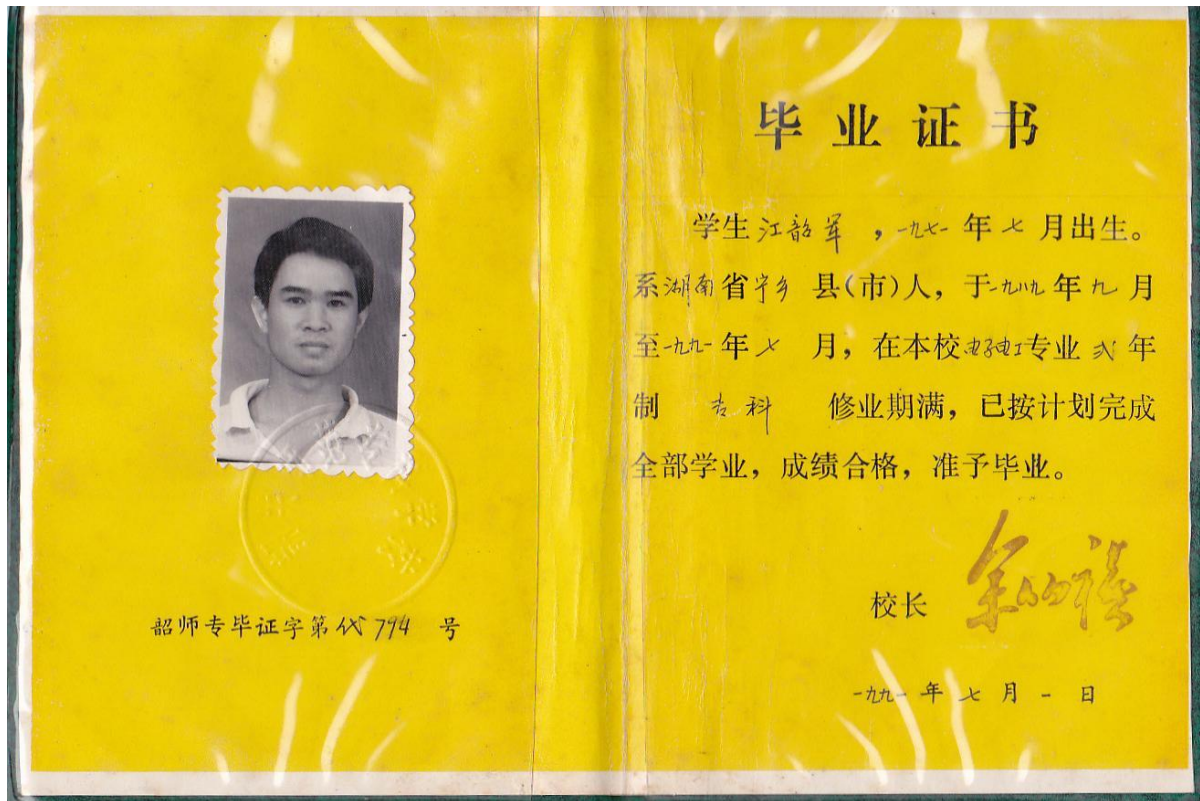 韶师专毕证字第代794号
毕业证书
学生江韶军，一九七一年七月出生。
系湖南省宁乡县(市)人，于一九八九年九月
至一九九一年七月，在本校电子电工专业弍年
制专科修业期满，已按计划完成
全部学业，成绩合格，准予毕业。
校长
一九九一年七月一日